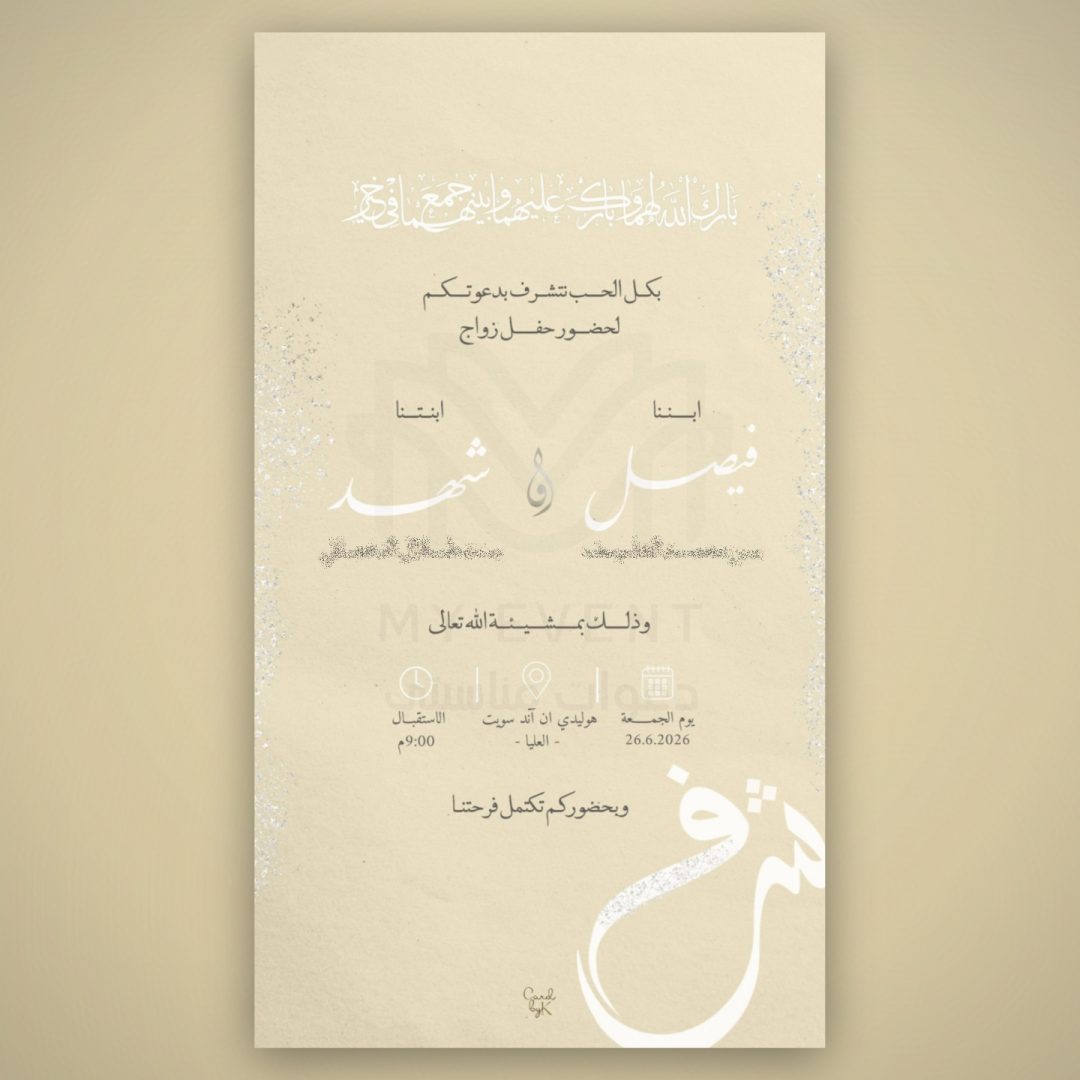 بارك الله لهما وبارك عليهما وجمع بينهما في خير
بكل الحب نتشرف بدعوتكم
لحضور حفل زواج
ابننا
ابنتنا
فيصل
و
شهد
وذلك بمشيئة الله تعالى
MY EVENT
دعوات مناسبتي
يوم الجمعة
26.6.2026
هوليدي ان آند سويت
- العليا -
الاستقبال
9:00م
وبحضوركم تكتمل فرحتنا
Card
by K